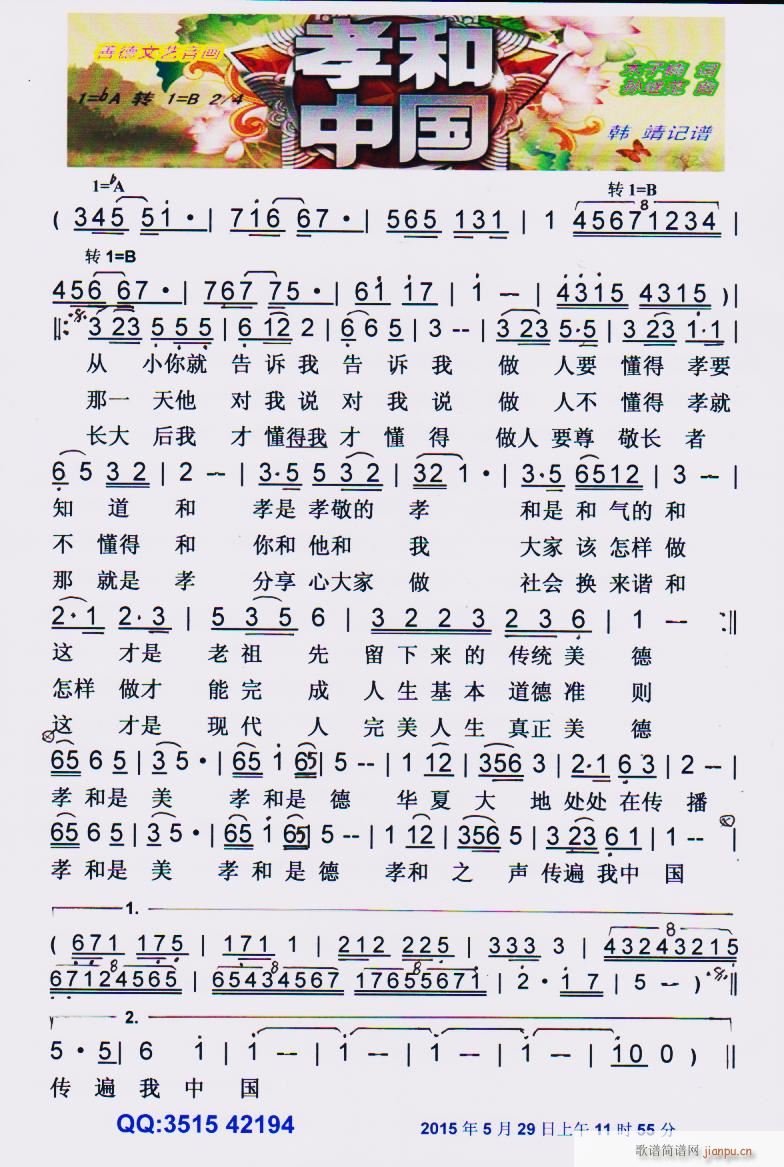 善德文艺音画
孝和
中国
1=bA 转 1=B 2/4
韩 靖记谱
1=bA
转1=B
( 345 51· | 716 67· | 565 131 | 1 45671234 |
转1=B
456 67· | 767 75· | 61 17 | 1 — | 4315 4315 ) |
3 23 5 5 5 | 6 12 2 | 6 6 5 | 3 -- | 3 23 5·5 | 3 23 1·1 |
从 小你就 告诉我 告诉我 做 人要 懂得 孝要
那一 天他 对我说 对我说 做 人不 懂得 孝就
长大 后我 才懂得我 才懂得 做人 要尊 敬长者
6 5 3 2 | 2 — | 3·5 5 3 2 | 32 1· | 3·5 6512 | 3 — |
知 道 和 孝是 孝敬的 孝 和是 和气的 和
不 懂得 和 你和 他和 我 大家 该怎样 做
那 就是 孝 分享 心大家 做 社会 换来谐和
2·1 2·3 | 5 3 5 6 | 3 2 2 3 2 3 6 | 1 — :||
这 才是 老祖 先 留下来的 传统美 德
怎样 做才 能完 成 人生基本 道德准 则
这 才是 现代 人 完美人生 真正美 德
65 6 5 | 3 5· | 65 1 65 | 5 -- | 1 12 | 356 3 | 2·1 6 3 | 2 — |
孝 和是 美 孝 和是 德 华 夏 大 地 处处 在传 播
65 6 5 | 3 5· | 65 6 65 | 5 -- | 1 12 | 356 5 | 3 23 6 1 | 1 -- |
孝 和是 美 孝 和 是 德 孝和 之 声 传遍 我中 国
1.
( 671 175 | 171 1 | 212 225 | 333 3 | 43243215
67124565 | 65434567 17655671 | 2· 17 | 5 — ) :||
2.
5· 5 | 6 1 | 1 — | 1 — | 1 — | 1 — | 10 0 ) ||
传 遍 我 中 国
QQ:3515 42194
2015 年 5 月 29 日上午 11 时 55 分
歌谱简谱网
jianpu.cn